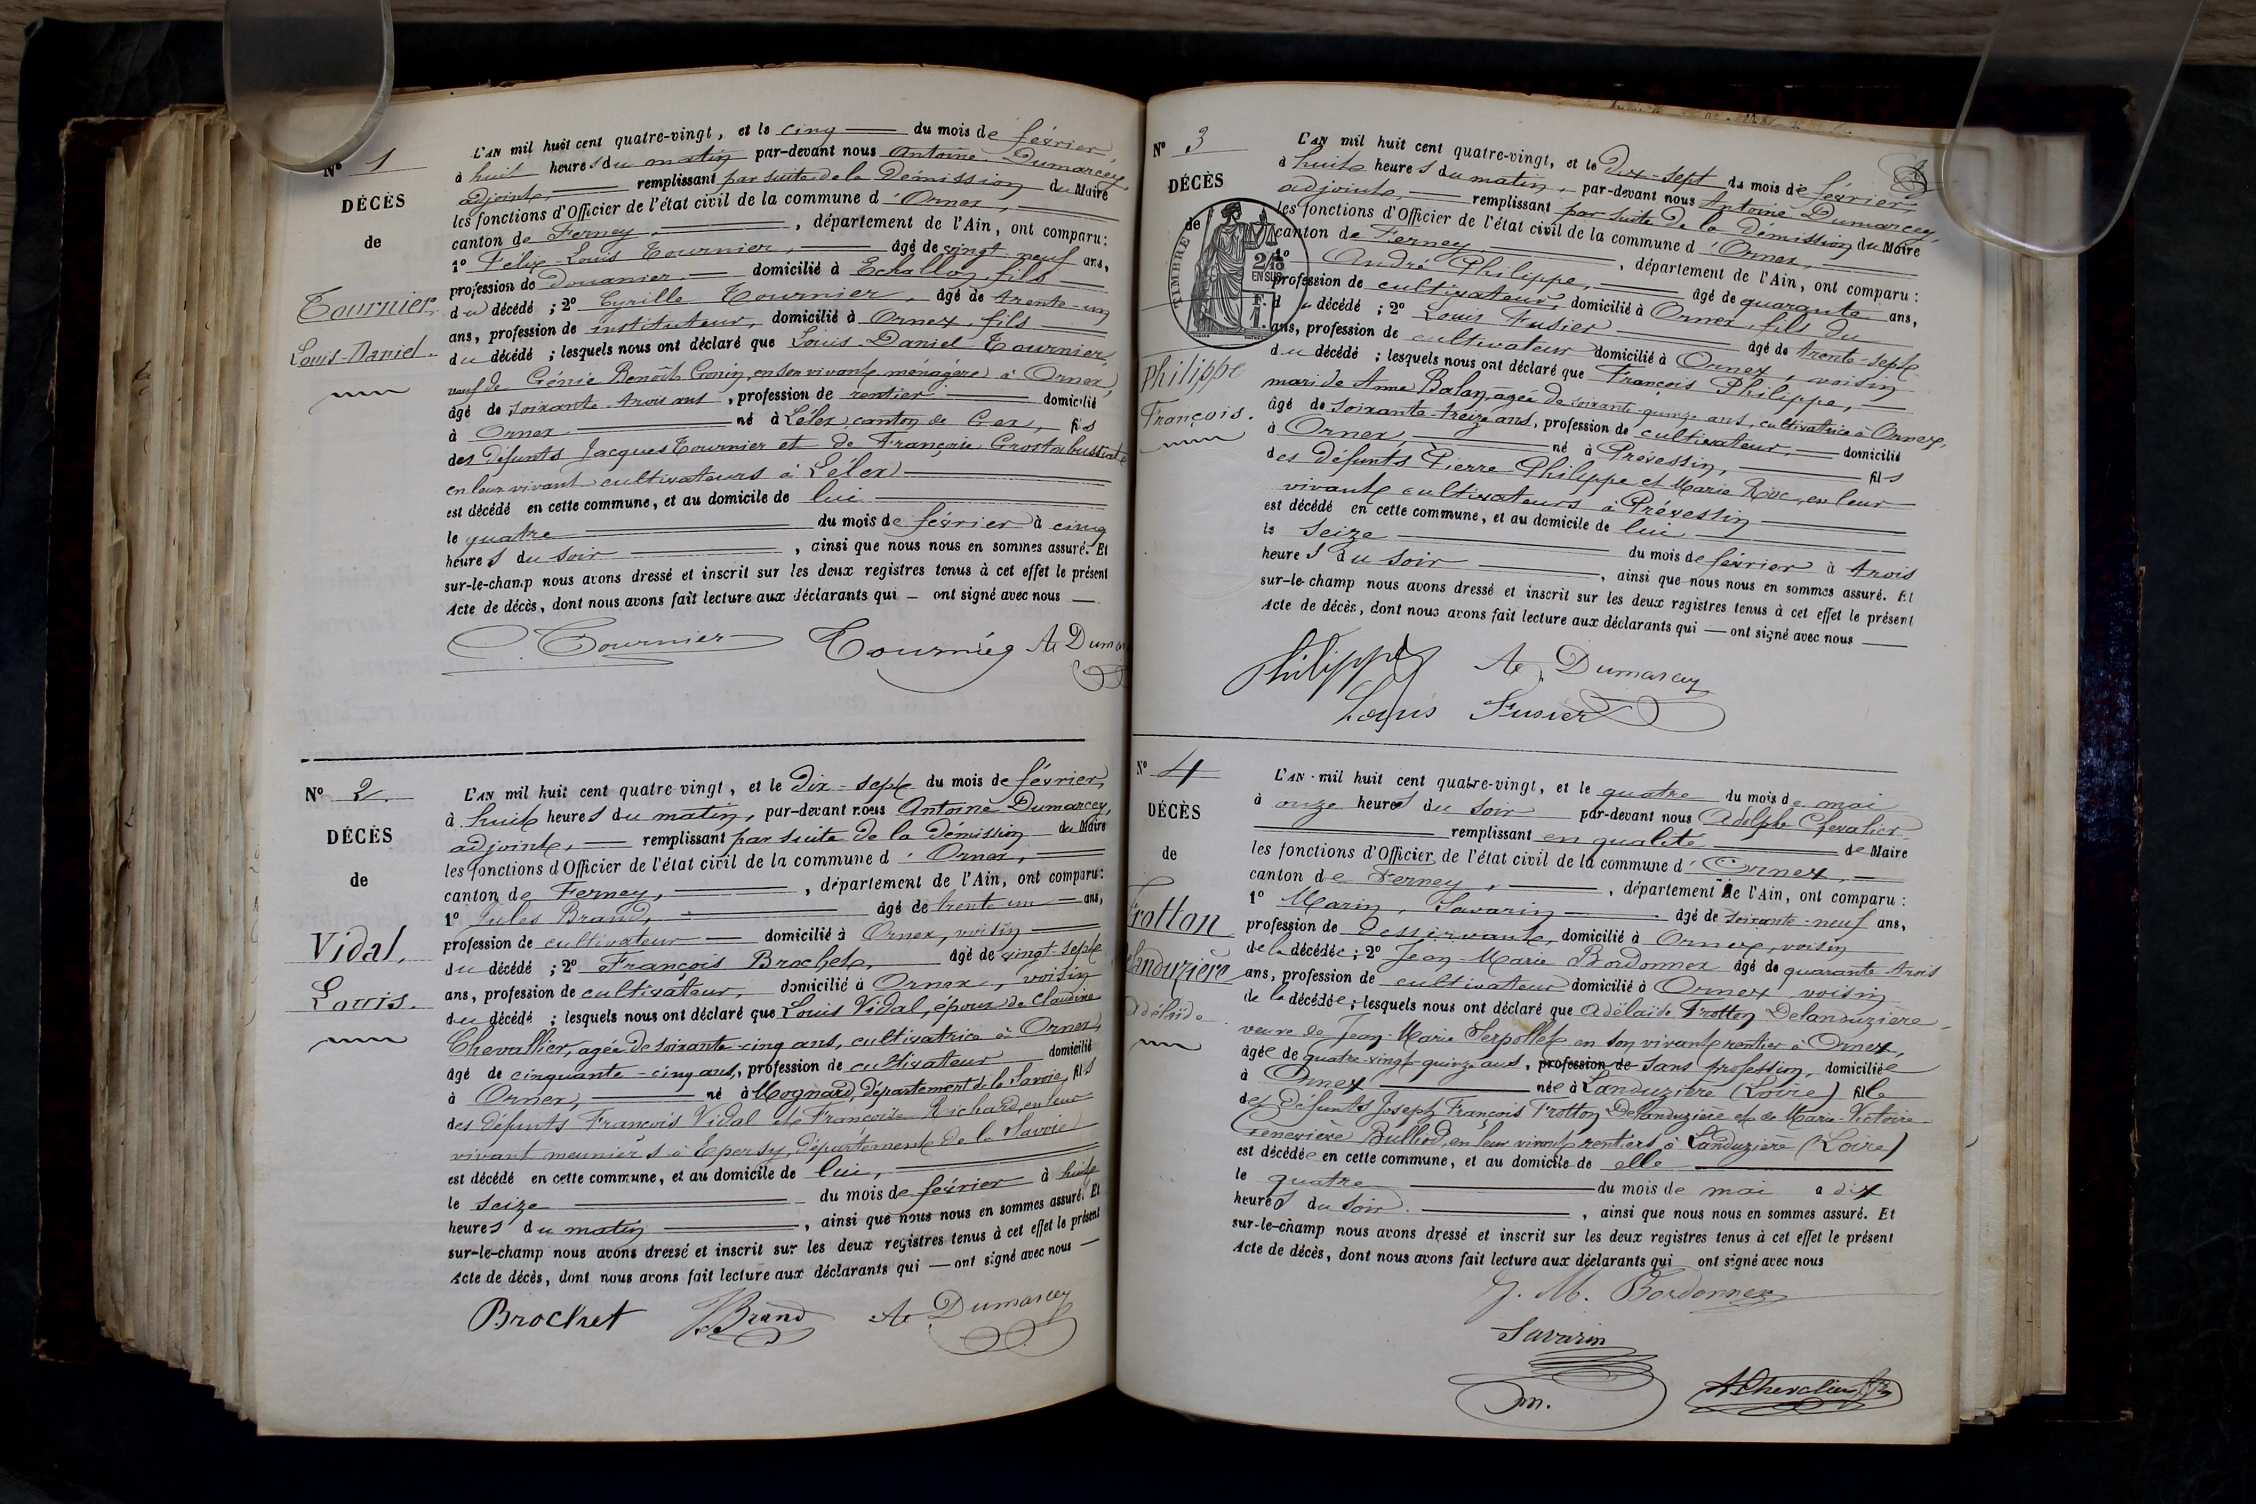 N° 1
DÉCÈS
de
Tournier
Louis-Daniel.
L'AN mil huit cent quatre-vingt, et le cinq du mois de février,
à huit heures du matin par-devant nous Antoine Dumarcey,
adjoint, remplissant par suite de la Démission du Maire
les fonctions d'Officier de l'état civil de la commune d'Ornex,
canton de Ferney, département de l'Ain, ont comparu:
1° Félix-Louis Tournier, âgé de vingt-neuf ans,
profession de douanier domicilié à Echallon, fils
du décédé ; 2° Cyrille Tournier, âgé de trente-un
ans, profession de instituteur, domicilié à Ornex, fils
du décédé ; lesquels nous ont déclaré que Louis-Daniel Tournier,
veuf de Génie Benoît en son vivant ménagère à Ornex,
âgé de soixante-trois ans, profession de rentier domicilié
à Ornex né à Lélex, canton de Gex, fils
des défunts Jacques Tournier et de Françoise
en leur vivant cultivateurs à Lélex
est décédé en cette commune, et au domicile de lui
le quatre du mois de février à cinq
heures du soir, ainsi que nous nous en sommes assuré. Et
sur-le-champ nous avons dressé et inscrit sur les deux registres tenus à cet effet le présent
Acte de décès, dont nous avons fait lecture aux déclarants qui — ont signé avec nous —
C. Tournier Tournier At Dumar
N° 2.
DÉCÈS
de
Vidal,
Louis.
L'AN mil huit cent quatre-vingt, et le Dix-sept du mois de février,
à huit heures du matin, par-devant nous Antoine Dumarcey,
adjoint, remplissant par suite de la démission du Maire
les fonctions d'Officier de l'état civil de la commune d'Ornex,
canton de Ferney, département de l'Ain, ont comparu:
1° Jules Brand, âgé de trente un ans,
profession de cultivateur domicilié à Ornex, voisin
du décédé ; 2° François Brochet, âgé de vingt-sept
ans, profession de cultivateur, domicilié à Ornex, voisin
du décédé ; lesquels nous ont déclaré que Louis Vidal, époux de Claudine
Chevallier, agée de soixante-cinq ans, cultivatrice à Ornex,
âgé de cinquante-cinq ans, profession de cultivateur domicilié
à Ornex, né à Mognard, département de la Savoie, fils
des défunts François Vidal et Françoise Richard, en leur
vivant meuniers à Epersy, département de la Savoie
est décédé en cette commune, et au domicile de lui,
le seize du mois de février à huit
heures du matin, ainsi que nous nous en sommes assuré. Et
sur-le-champ nous avons dressé et inscrit sur les deux registres tenus à cet effet le présent
Acte de décès, dont nous avons fait lecture aux déclarants qui — ont signé avec nous —
Brochet J. Brand At Dumarcey
N° 3
DÉCÈS
de
TIMBRE
2/10
EN SUS
F.
Philippe
François.
L'AN mil huit cent quatre-vingt, et le Dix-sept du mois de février,
à huit heures du matin, par-devant nous Antoine Dumarcey,
adjoint, remplissant par suite de la démission du Maire
les fonctions d'Officier de l'état civil de la commune d'Ornex,
canton de Ferney, département de l'Ain, ont comparu :
1° André Philippe, âgé de quarante ans,
profession de cultivateur, domicilié à Ornex, fils du
du décédé ; 2° Louis Fusier âgé de trente-sept
ans, profession de cultivateur domicilié à Ornex, voisin
du décédé ; lesquels nous ont déclaré que François Philippe,
mari de Anne Balan, agée de soixante-quinze ans, cultivatrice à Ornex,
âgé de soixante-treize ans, profession de cultivateur, domicilié
à Ornex, né à Prévessin, fils
des défunts Pierre Philippe et Marie en leur
vivant cultivateurs à Prévessin
est décédé en cette commune, et au domicile de lui
le seize du mois de février à trois
heures du soir, ainsi que nous nous en sommes assuré. Et
sur-le-champ nous avons dressé et inscrit sur les deux registres tenus à cet effet le présent
Acte de décès, dont nous avons fait lecture aux déclarants qui — ont signé avec nous —
Philippe At Dumarcey
Louis Fusier
N° 4
DÉCÈS
de
Frotton
elanduzière
Adélaïde
L'AN mil huit cent quatre-vingt, et le quatre du mois de mai
à onze heures du soir par-devant nous Adolphe Chevalier
remplissant en qualité de Maire
les fonctions d'Officier de l'état civil de la commune d'Ornex,
canton de Ferney, département de l'Ain, ont comparu :
1° Marin, Savarin âgé de soixante-neuf ans,
profession de Desservant, domicilié à Ornex, voisin
de la décédée ; 2° Jean-Marie Bordonnex âgé de quarante-trois
ans, profession de cultivateur domicilié à Ornex voisin
de la décédée ; lesquels nous ont déclaré que Adélaïde Frotton Delanduziere
veuve de Jean-Marie Serpollet en son vivant rentier à Ornex,
âgée de quatre-vingt-quinze ans, profession de sans profession, domiciliée
à Ornex née à Landuzière (Loire) fille
des défunts Joseph François Frotton Delanduziere et de Marie-Victoire
Genevière Bulliod, en leur vivant rentiers à Landuzière (Loire)
est décédée en cette commune, et au domicile de elle
le quatre du mois de mai a dix
heures du soir, ainsi que nous nous en sommes assuré. Et
sur-le-champ nous avons dressé et inscrit sur les deux registres tenus à cet effet le présent
Acte de décès, dont nous avons fait lecture aux déclarants qui ont signé avec nous
J. M. Bordonnex
Savarin
m. A Chevalier